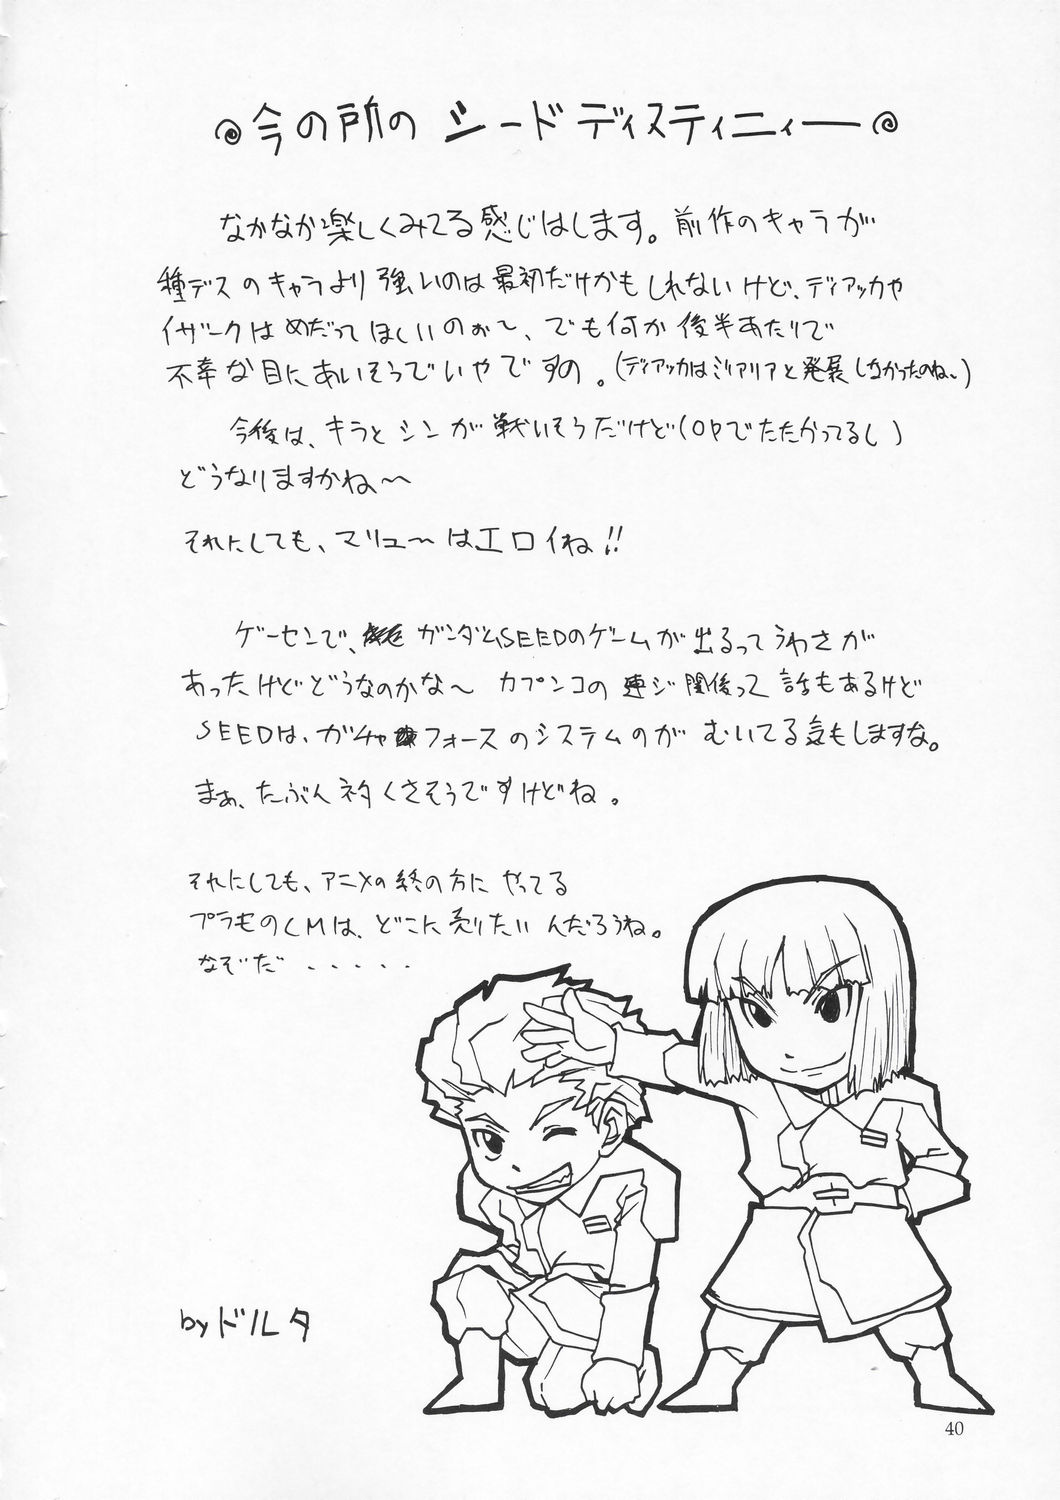 今の所の シード ディスティニィー
なかなか楽しくみてる感じはします。前作のキャラが
種デスのキャラより強いのは最初だけかもしれないけど、ディアッカや
イザークはめだってほしいのぉ～、でも何か後半あたりで
不幸な目にあいそうでいやですの。(ディアッカはミリアリアと発展しなかったのね～)
今後は、キラとシンが戦いそうだけど(OPでたたかってるし)
どうなりますかね～
それにしても、マリュ～はエロイね!!
ゲーセンで、ガンダムSEEDのゲームが出るってうわさが
あったけどどうなのかな～ カプンコの連ジ関係って話もあるけど
SEEDは、ガチャフォースのシステムのが むいてる気もしますな。
まぁ、たぶんネタくさそうですけどね。
それにしても、アニメの終の方に やってる
プラモのCMは、どこに売りたいんだろうね。
なぞだ・・・・・
by ドルタ
40